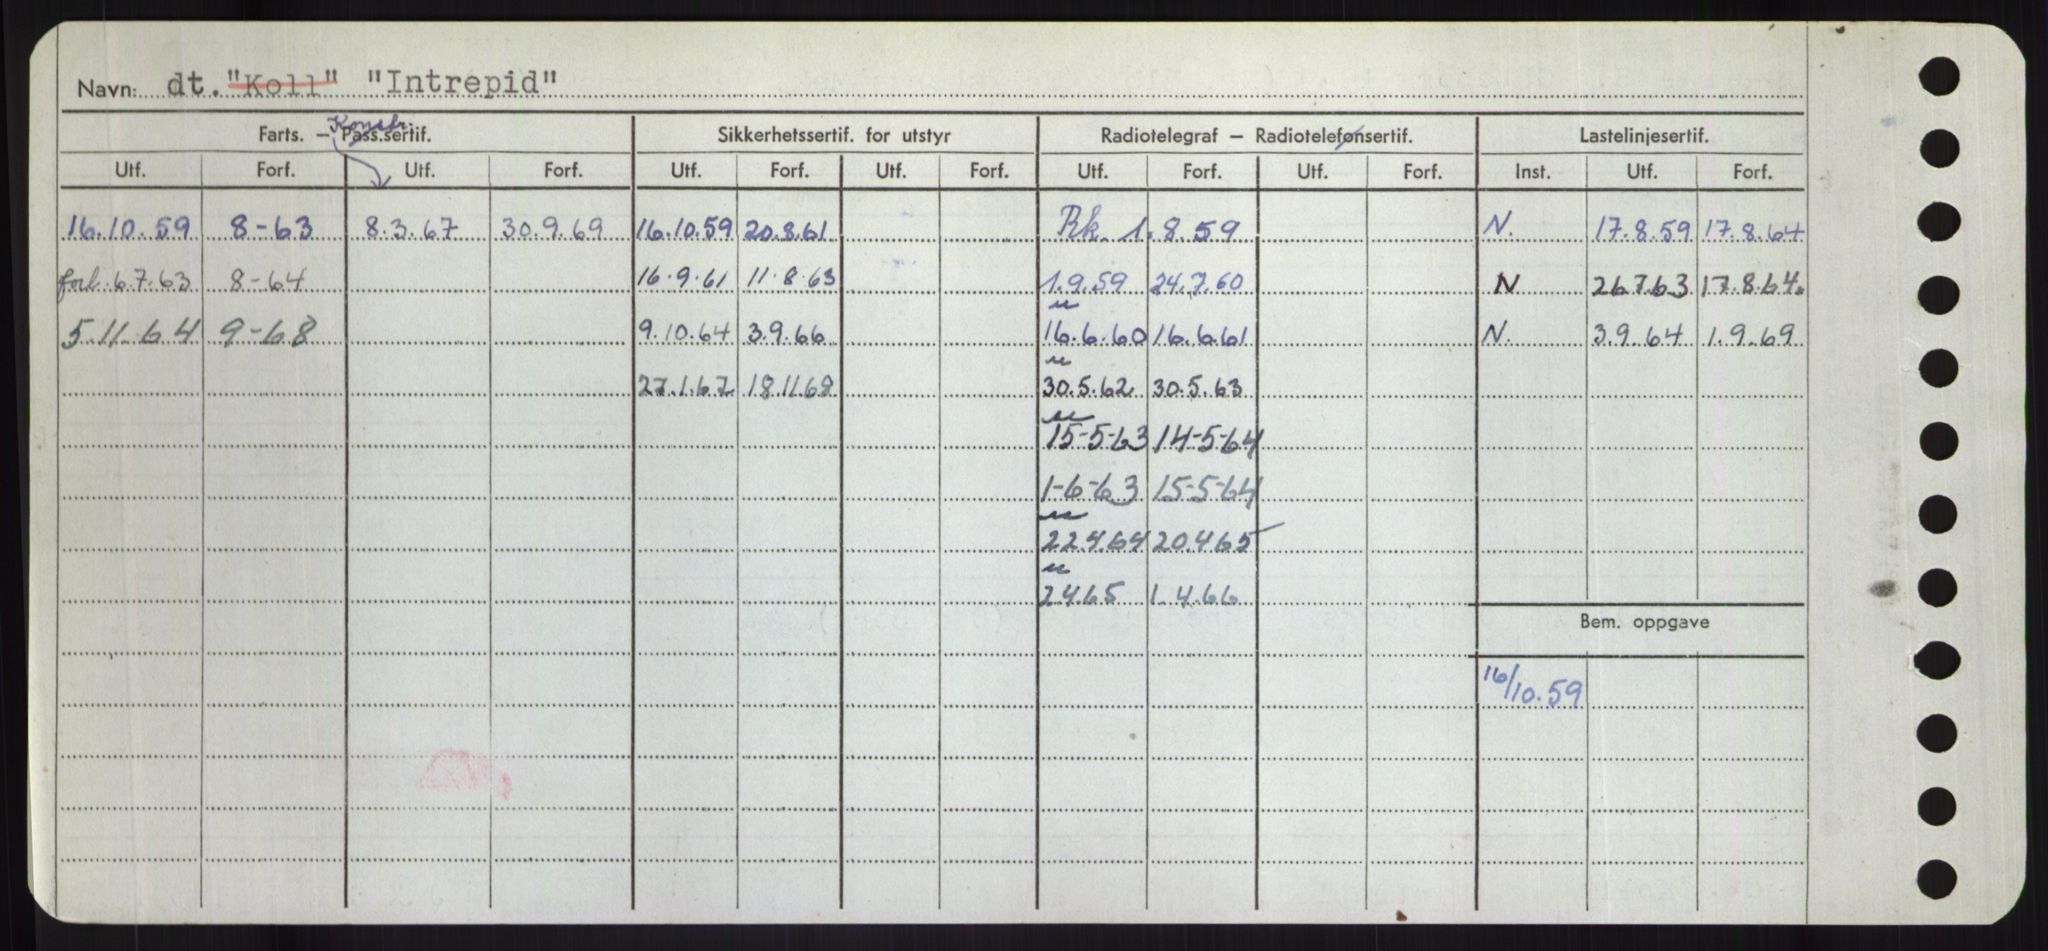 Navn: dt. "Koll" "Intrepid"
Farts. — Pass.sertif. Konstr. Sikkerhetssertif. for utstyr Radiotelegraf — Radiotelefonsertif. Lastelinjesertif.
Utf. Forf. Utf. Forf. Utf. Forf. Utf. Forf. Utf. Forf. Utf. Forf. Inst. Utf. Forf.
16.10.59 8-63 8.3.67 30.9.69 16.10.59 20.8.61 Rk. 1.8.59 N. 17.8.59 17.8.64
forl. 6.7.63 8-64 16.9.61 11.8.63 1.9.59 24.7.60 N 26.7.63 17.8.64.
5.11.64 9-68 9.10.64 3.9.66 16.6.60 16.6.61 N. 3.9.64 1.9.69
27.1.67 18.11.68 30.5.62 30.5.63
15-5-63 14-5-64
1-6-63 15-5-64
22.4.64 20.4.65
2.4.65 1.4.66
Bem. oppgave
16/10.59